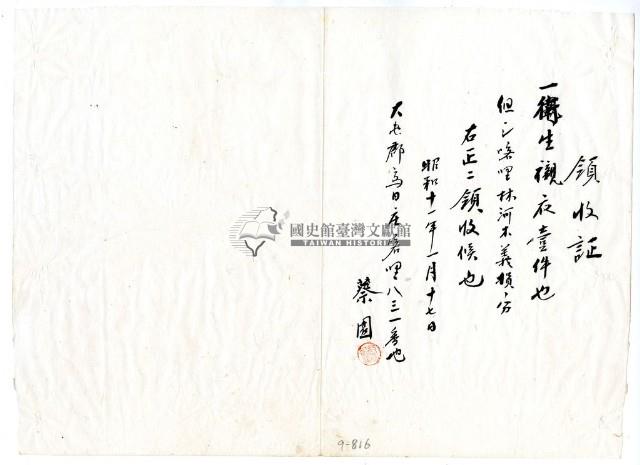 領收証
一衛生襯衣壹件也
但シ喀哩林河木義損ノ分
右正ニ領收候也
昭和十一年一月十七日
大屯郡烏日庄喀哩八三一番地
蔡園
國史館臺灣文獻館
TAIWAN HISTORICA
9-816